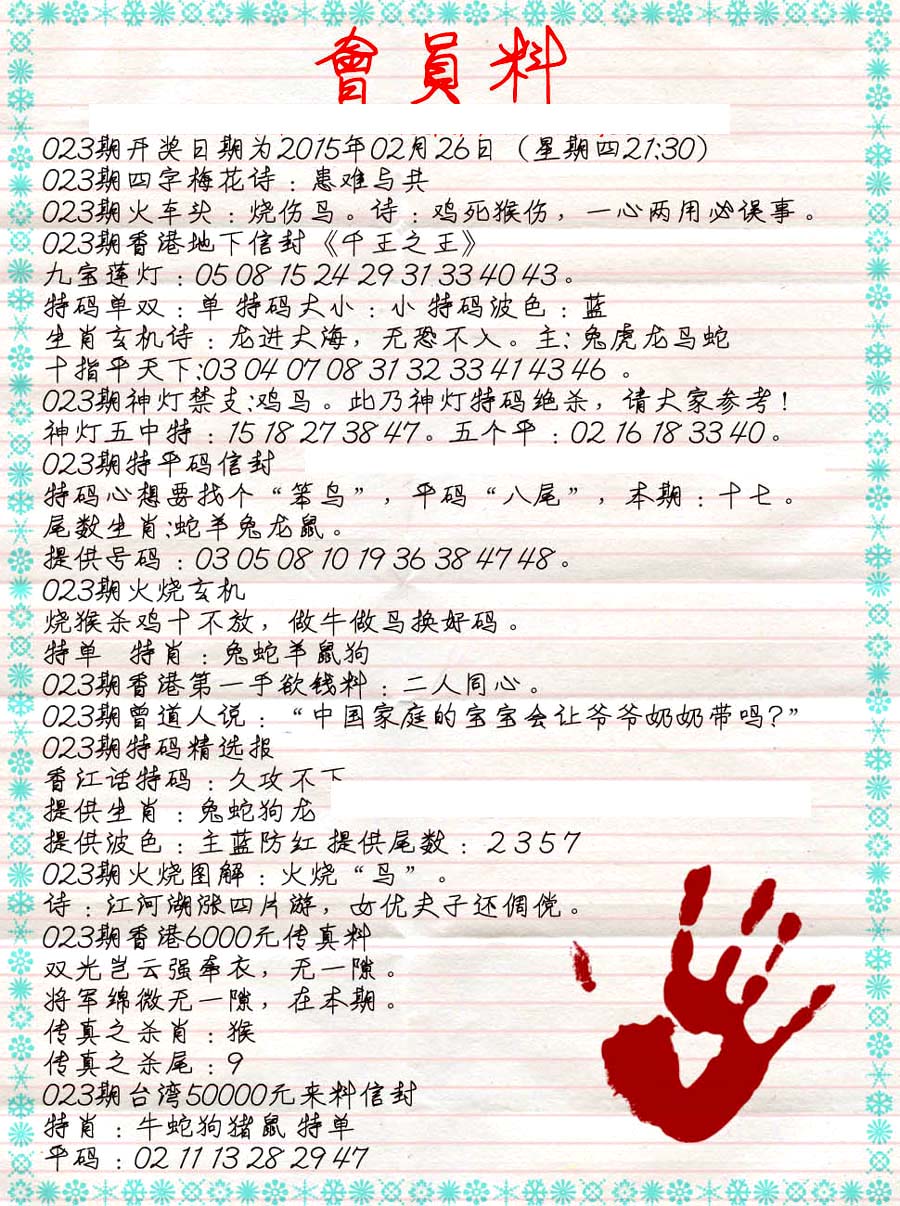 會員料
023期开奖日期为2015年02月26日（星期四21:30）
023期四字梅花诗：患难与共
023期火车头：烧伤鸟。诗：鸡死猴伤，一心两用必误事。
023期香港地下信封《千王之王》
九宝莲灯：05 08 15 24 29 31 33 40 43。
特码单双：单 特码大小：小 特码波色：蓝
生肖玄机诗：龙进大海，无恐不入。主:兔虎龙鸟蛇
十指平天下:03 04 07 08 31 32 33 41 43 46 。
023期神灯禁支:鸡鸟。此乃神灯特码绝杀，请大家参考！
神灯五中特：15 18 27 38 47。五个平：02 16 18 33 40。
023期特平码信封
特码心想要找个“笨鸟”，平码“八尾”，本期：十七。
尾数生肖:蛇羊兔龙鼠。
提供号码：03 05 08 10 19 36 38 47 48。
023期火烧玄机
烧猴杀鸡十不放，做牛做鸟换好码。
特单 特肖：兔蛇羊鼠狗
023期香港第一手欲钱料：二人同心。
023期曾道人说：“中国家庭的宝宝会让爷爷奶奶带吗?”
023期特码精选报
香江话特码：久攻不下
提供生肖：兔蛇狗龙
提供波色：主蓝防红 提供尾数： 2 3 5 7
023期火烧图解：火烧“鸟”。
诗：江河湖涨四片游，女优夫子还倜傥。
023期香港6000元传真料
双光岂云强牵衣，无一隙。
将军绵微无一隙，在本期。
传真之杀肖：猴
传真之杀尾：9
023期台湾50000元来料信封
特肖：牛蛇狗猪鼠 特单
平码：02 11 13 28 29 47